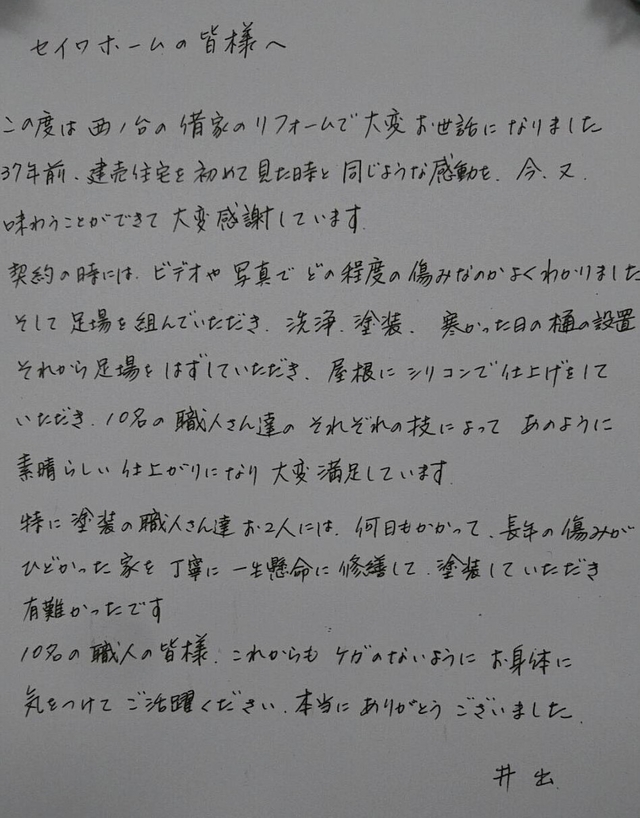 セイワホームの皆様へ
この度は西ノ台の借家のリフォームで大変お世話になりました
37年前、建売住宅を初めて見た時と同じような感動を、今、又、
味わうことができて大変感謝しています。
契約の時には、ビデオや写真でどの程度の傷みなのかよくわかりました
そして足場を組んでいただき、洗浄、塗装、寒かった日の樋の設置
それから足場をはずしていただき、屋根にシリコンで仕上げをして
いただき、10名の職人さん達のそれぞれの技によってあのように
素晴らしい仕上がりになり大変満足しています。
特に塗装の職人さん達お2人には、何日もかかって、長年の傷みが
ひどかった家を丁寧に一生懸命に修繕して、塗装していただき
有難かったです
10名の職人の皆様、これからもケガのないようにお身体に
気をつけてご活躍ください、本当にありがとうございました。
井出